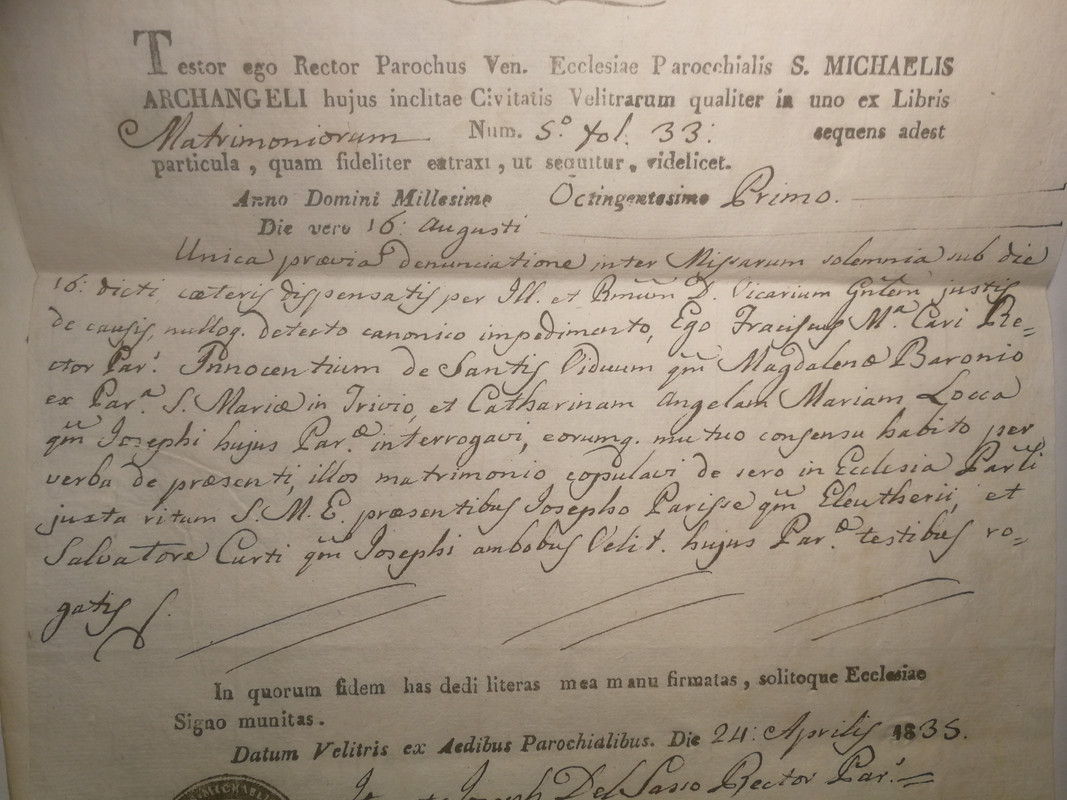 Testor ego Rector Parochus Ven. Ecclesiae Parocchialis S. MICHAELIS
ARCHANGELI hujus inclitae Civitatis Velitrarum qualiter in uno ex Libris
Matrimoniorum Num. 5.º fol. 33: sequens adest
particula, quam fideliter extraxi, ut sequitur, videlicet.
Anno Domini Millesimo Octingentesimo Primo.
Die vero 16: Augusti
Unica prævia denunciatione inter Missarum solemnia sub die
16: dicti cæteris dispensatis per Ill. et Rmum D. Vicarium Gnlem justis
de causis, nulloq. detecto canonico impedimento, Ego Fraciscus M.ª Cari Re=
ctor Par.s Innocentium de Santis Viduum qm Magdalenæ Baronio
ex Par.ª S. Mariæ in Trivio, et Catharinam Angelam Mariam Locca
qm Josephi hujus Par.æ interrogavi, eorumq. mutuo consensu habito per
verba de præsenti, illos matrimonio copulavi de sero in Ecclesia Parli
juxta ritum S. M. E. præsentibus Josepho Parisse qm Eleutherii, et
Salvatore Curti qm Josephi ambobus Velit. hujus Par.æ testibus ro=
gatis
In quorum fidem has dedi literas mea manu firmatas, solitoque Ecclesiae
Signo munitas.
Datum Velitris ex Aedibus Parochialibus. Die 24: Aprilis 1835.
Joseph Del Sasso Rector Par.s
MICHAELI